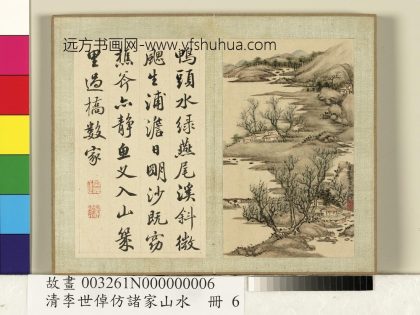 远方书画网-www.yfshuhua.com
鴨頭水綠燕尾溪斜微
飔生浦澹日明沙既窈
樵斧亦靜魚义入山幾
里過橋數家
故畫 003261N000000006
清李世倬仿諸家山水 冊 6